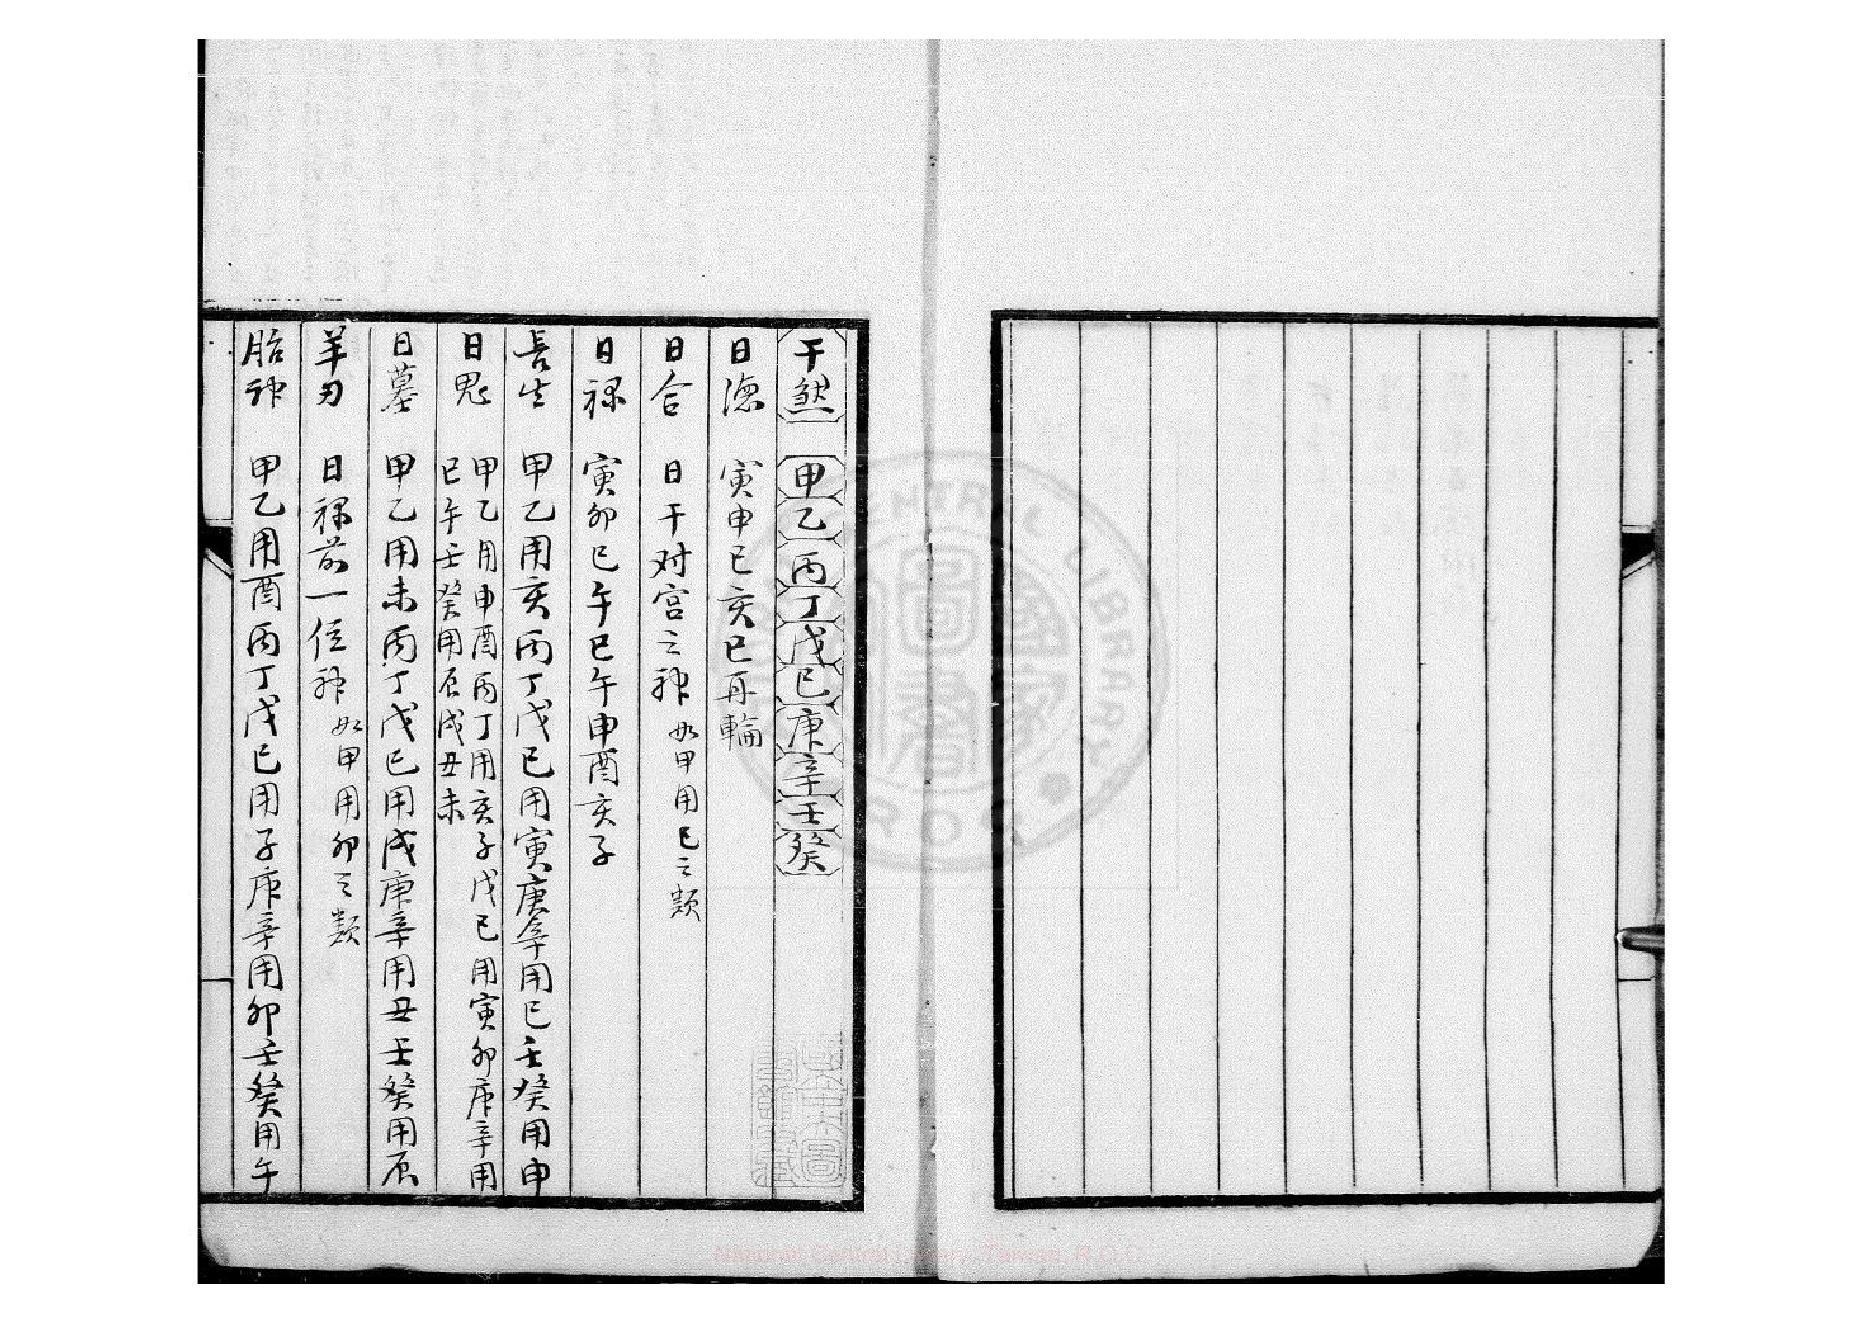 干煞 甲乙丙丁戊己庚辛壬癸
日德 寅申巳亥巳再輪
日合 日干对宫之神 如甲用己之類
日禄 寅卯巳午巳午申酉亥子
長生 甲乙用亥丙丁戊己用寅庚辛用巳壬癸用申
日鬼 甲乙用申酉丙丁用亥子戊己用寅卯庚辛用
巳午壬癸用辰戌丑未
日墓 甲乙用未丙丁戊己用戌庚辛用丑壬癸用辰
羊刃 日禄前一位神 如甲用卯之類
胎神 甲乙用酉丙丁戊己用子庚辛用卯壬癸用午
National Central Library, Taiwan, R.O.C